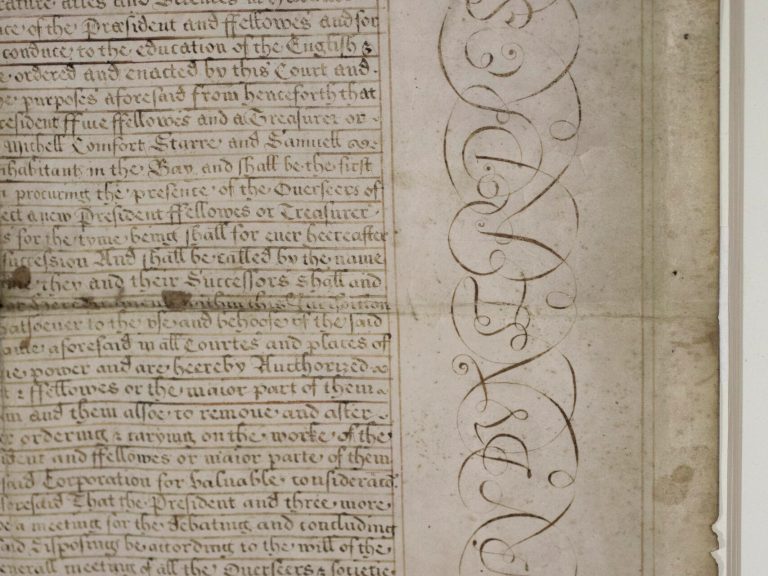 ce of the Præsident and ffellowes and for
conduce to the education of the English &
ordered and enacted by this Court and
purposes aforesaid from henceforth that
resident ffiue ffellowes and a Treasurer or
Mitchell Comfort Starre and Samuell
nhabitants in the Bay, and shall be the first
procuring the presence of the Overseers of
ect a new President ffellowes or Treasurer
s for the tyme being shall for ever hereafter
succession And shall be called by the name
they and their Successors shall and
within this Jurisdiccon
hatsoever to the vse and behoofe of the said
aforesaid in all Courtes and places of
power and are hereby Authorized
& ffellowes or the maior part of them
and them alsoe to remove and after
ordering & carying on the worke of the
ident and ffellowes or maior parte of them
said Corporation for valuable considerac
foresaid That the President and three more
a meeting for the debating and concluding
disposing be according to the will of the
generall meeting of all the Overseers & societie